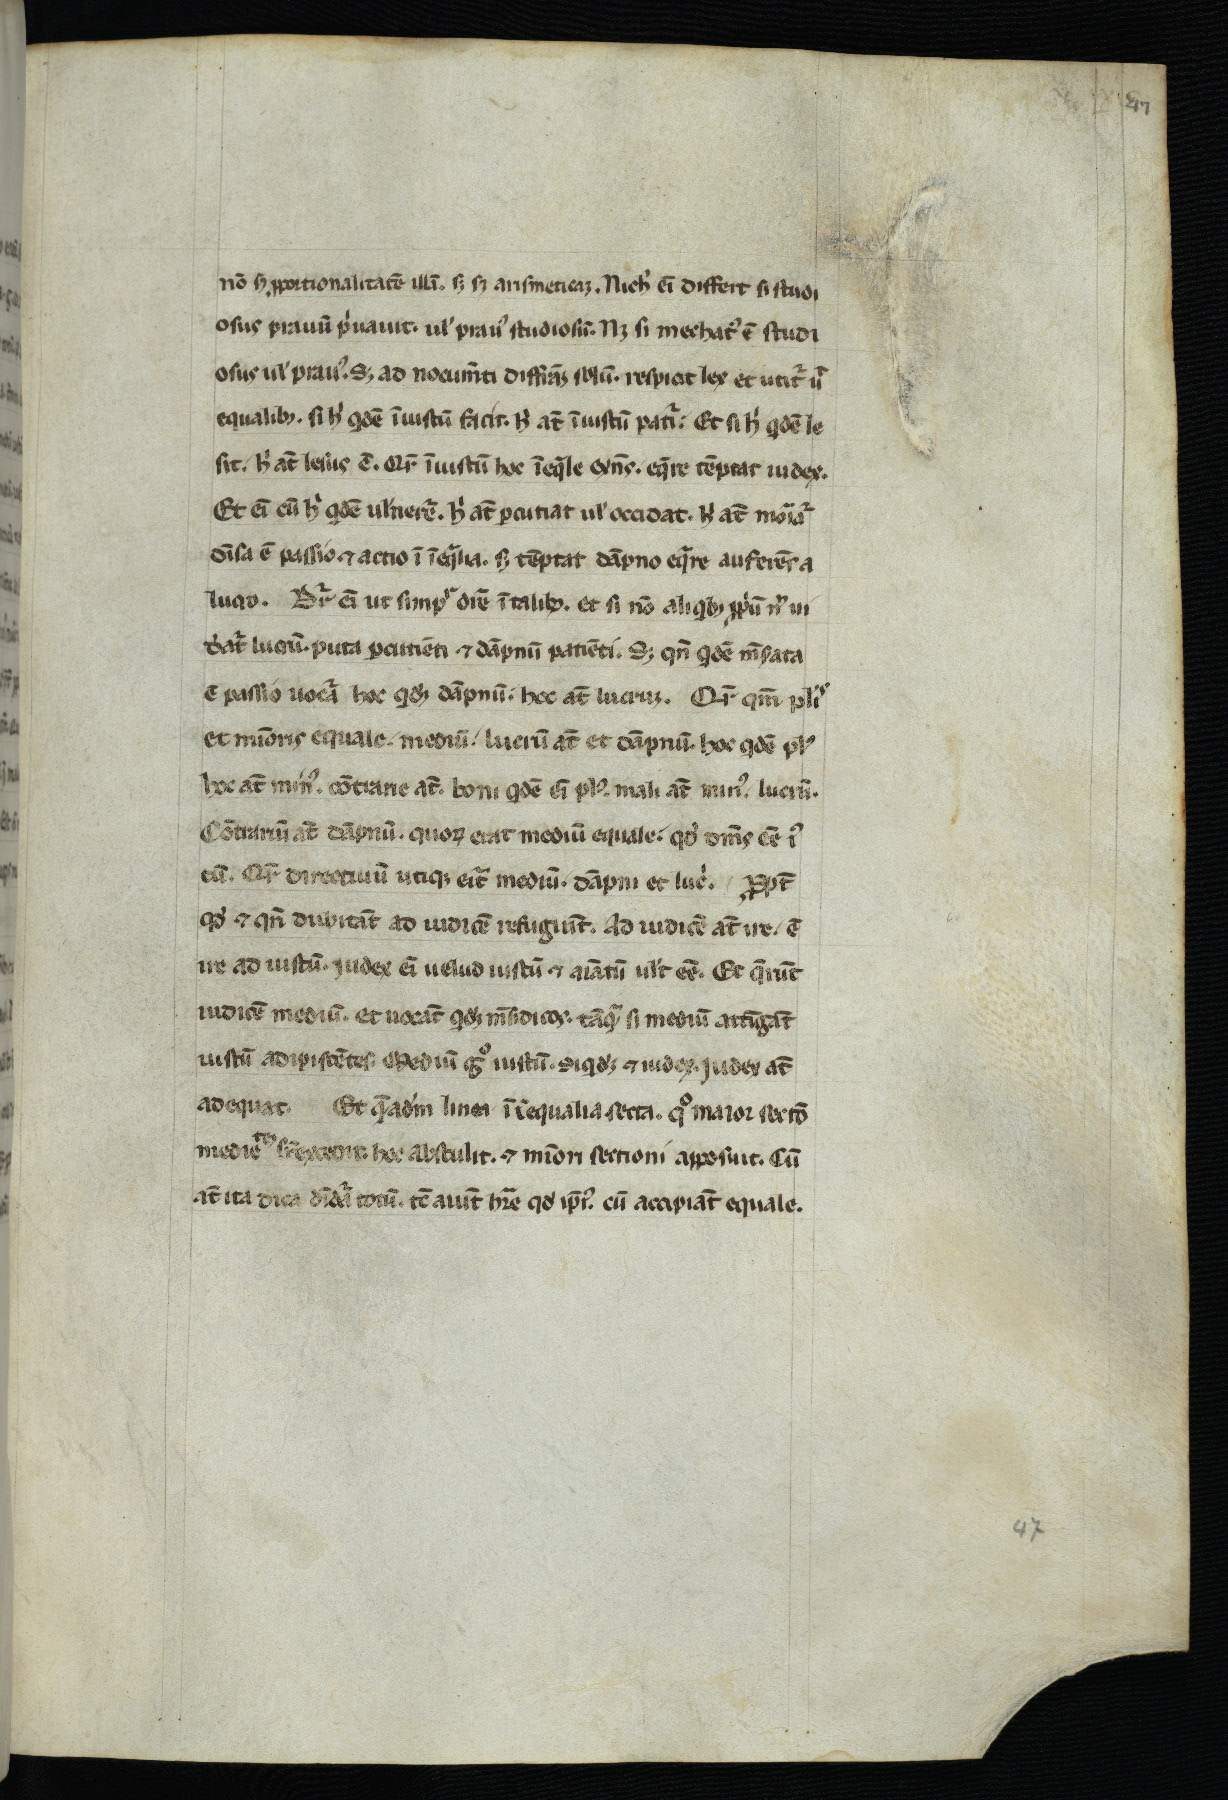 47
nō sꝫ ꝓportionalitatē illā. sꝫ sꝫ arismeticaꝫ. Nich' ei differt si studi
osus prauū p̍uauit. ul' prau᾽ studiosū. Nꝫ si mechat᾽ ē studi
osus ul' prau᾽. Sꝫ ad nocum̄ti diffr̄aꝫ solū. respicit lex et utit᷑ ut
equalibꝫ. si h̍ qdē īiustū facit. h̍ at̄ īiustū patit᷑. Et si h̍ qdē le
sit. h̍ at̄ lesus ē. Qr̄ īiustū hoc īeq̄le exn̄s. eq̄re tēptat iudex.
Et ei cū h̍ qdē uln̍eret᷑. h̍ at̄ ꝑcutiat ul' occidat. h̍ at̄ moriat᷑
diuisa ē passio ⁊ actio ī īeq̄lia. sꝫ tēptat dāpno eq̄re auferēs a
lucro. Dr̄ ei ut simpl᷑ dicē ī talibꝫ. et si nō aliqbꝫ ꝓp̍ū nn̄ ui
debit᷑ lucrū. puta ꝑcutiēti ⁊ dāpnū patiēti. Sꝫ qn̄ qdē mēsurata
ē passio uocat᷑ hoc qdꝫ dāpnū. hoc at̄ lucruꝫ. Qr̄ qm̄ plis᾽
et mīoris equale. mediū. lucrū at̄ et dāpnū. hoc qdē pl᾽
hoc at̄ min᾽. cōtrarie at̄. boni qdē ei pl᾽. mali at̄ min᾽. lucrū.
Cōtrariū at̄ dāpnū. quoꝝ erat mediū equale. qd̍ dicim᾽ eē i᾽
tū. Qr̄ directiuū utiqꝫ erit mediū. dāpni et luc̍. Ꝓpt̄
qd̍ ⁊ qn̄ dubitāt ad iudicē refugiūt. Ad iudicē at̄ ire. ē
ire ad iustū. Iudex ei uelud iustū ⁊ aiatū ult eē. Et q̄rūt
iudicē mediū. et uocāt qdꝫ mēdidicos. tāq̄ si mediū attīgāt
iustū adipiscētes. Mediū gͦ iustū. siqdꝫ ⁊ iudex. Iudex at̄
adequat. Et q̄admͦ linea ī īequalia secta. qͦ maior sectio
medietatē suꝑexcedit. hoc abstulit. ⁊ mīori sectioni apposuit. Cū
at̄ ita dica diuidat᷑ totū. tc̄ aiūt hr̄e qd̍ ip̄i᾽. cū accipiāt equale.
47